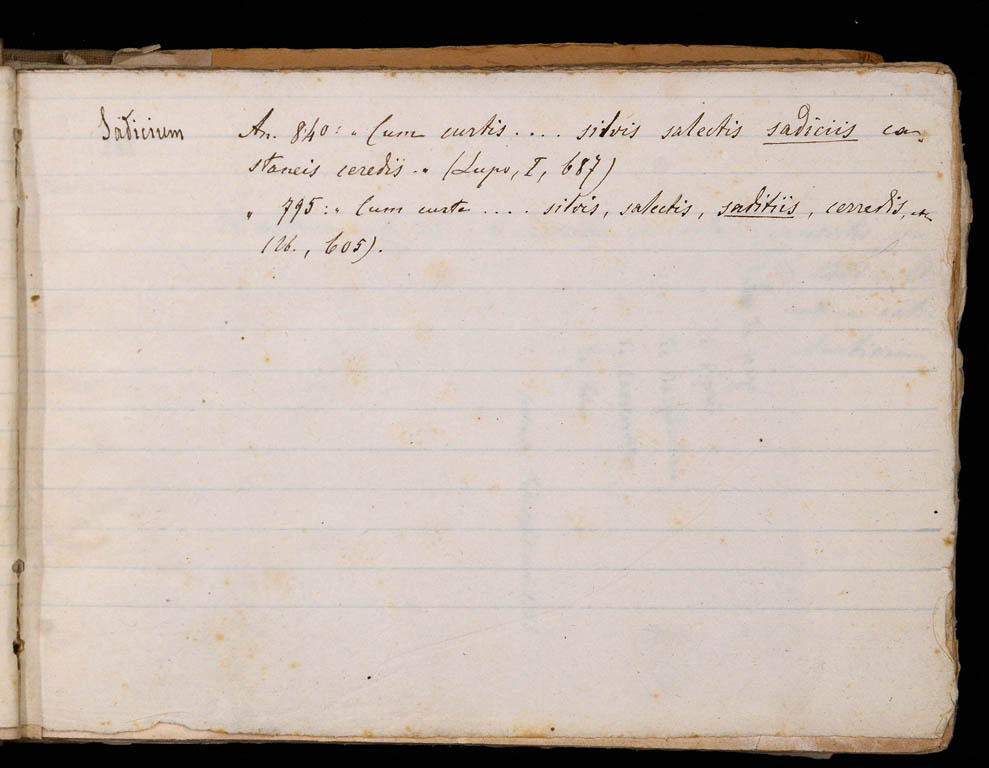 Sadicium An. 840: „ Cum curtis .... silvis salectis sadiciis ca-
staneis ceredis." (Lupo, I, 687)
„ 795: „ Cum curte .... silvis, salectis, saditiis, cerredis, etc
(Ib., 605).